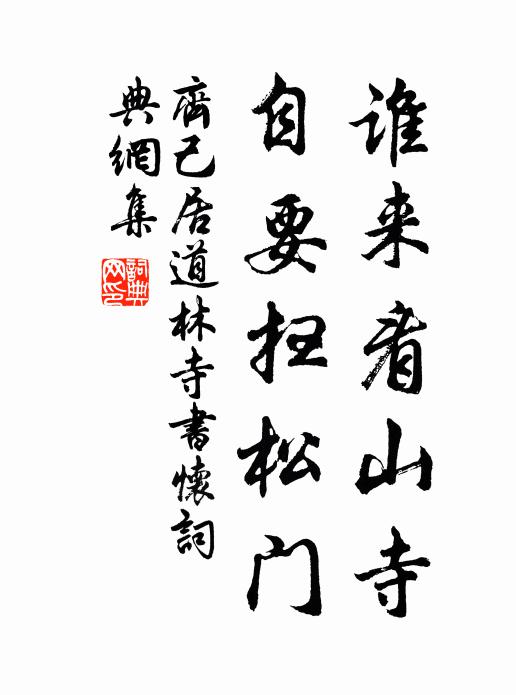 谁来看山寺
自要扫松门
齊己居道林寺書懷詞
典網集
詞典
网印